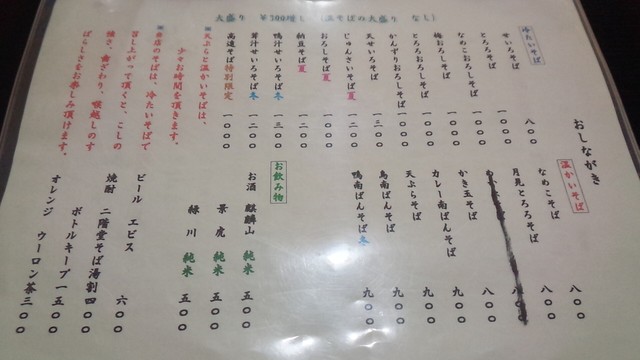 おしながき
大盛り ¥300増し (温そばの大盛り なし)
冷たいそば
せいろそば 八〇〇
とろろそば 一〇〇〇
なめこおろしそば 一〇〇〇
梅おろしそば 一〇〇〇
とろろおろしそば 一〇〇〇
かんずりおろしそば 一〇〇〇
天せいろそば 一三〇〇
じゅんさいそば 夏
おろしそば 夏
納豆そば 夏 一二〇〇
鴨汁せいろそば 冬 一三〇〇
茸汁せいろそば 冬 一二〇〇
高遠そば 特別限定 一〇〇〇
※天ぷらと温かいそばは、
少々お時間を頂きます。
※当店のそばは、冷たいそばで
召し上がって頂くと、こしの
強さ、歯ざわり、喉越しのす
ばらしさをお楽しみ頂けます。
温かいそば
八〇〇
なめこそば 八〇〇
月見とろろそば 八〇〇
かき玉そば 八〇〇
カレー南ばんそば 九〇〇
天ぷらそば 九〇〇
鳥南ばんそば 九〇〇
鴨南ばんそば 冬 九〇〇
お飲み物
お酒 麒麟山 純米 五〇〇
景虎 純米 五〇〇
緑川 純米 五〇〇
ビール エビス 六〇〇
焼酎 二階堂そば湯割 四〇〇
ボトルキープ 一五〇〇
オレンジ ウーロン茶 三〇〇